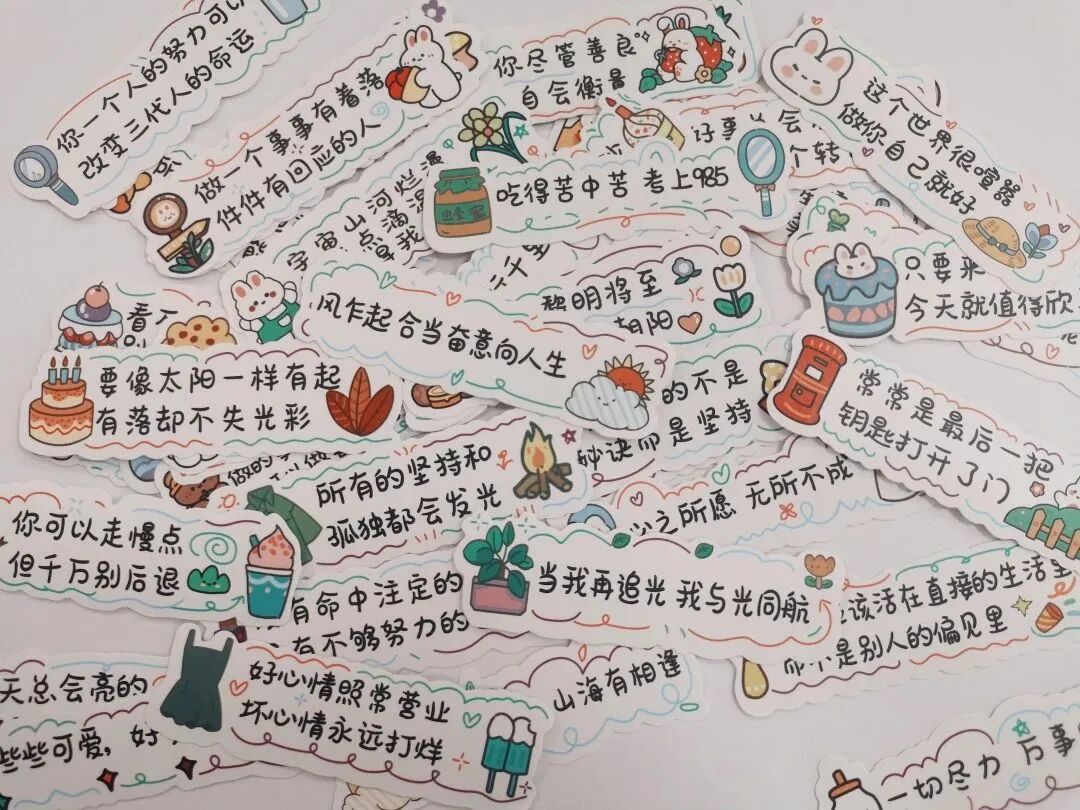 你一个人的努力可以
改变三代人的命运
做一个事事有着落
件件有回应的人
你尽管善良
自会衡量
好事
会
个转
这个世界很喧嚣
做你自己就好
吃得苦中苦 考上985
蜂蜜
宇宙山河烂漫
点滴
千里
黎明将至
朝阳
只要来
今天就值得欣
风乍起 合当奋意向人生
看
要像太阳一样有起
有落却不失光彩
的不是
秘诀而是坚持
常常是最后一把
钥匙打开了门
做的
所有的坚持和
孤独都会发光
心之所愿 无所不成
你可以走慢点
但千万别后退
有命中注定的
有不够努力的
当我再追光 我与光同航
该活在直接的生活里
而不是别人的偏见里
天总会亮的
些些可爱，好
好心情照常营业
坏心情永远打烊
山海有相逢
一切尽力 万事